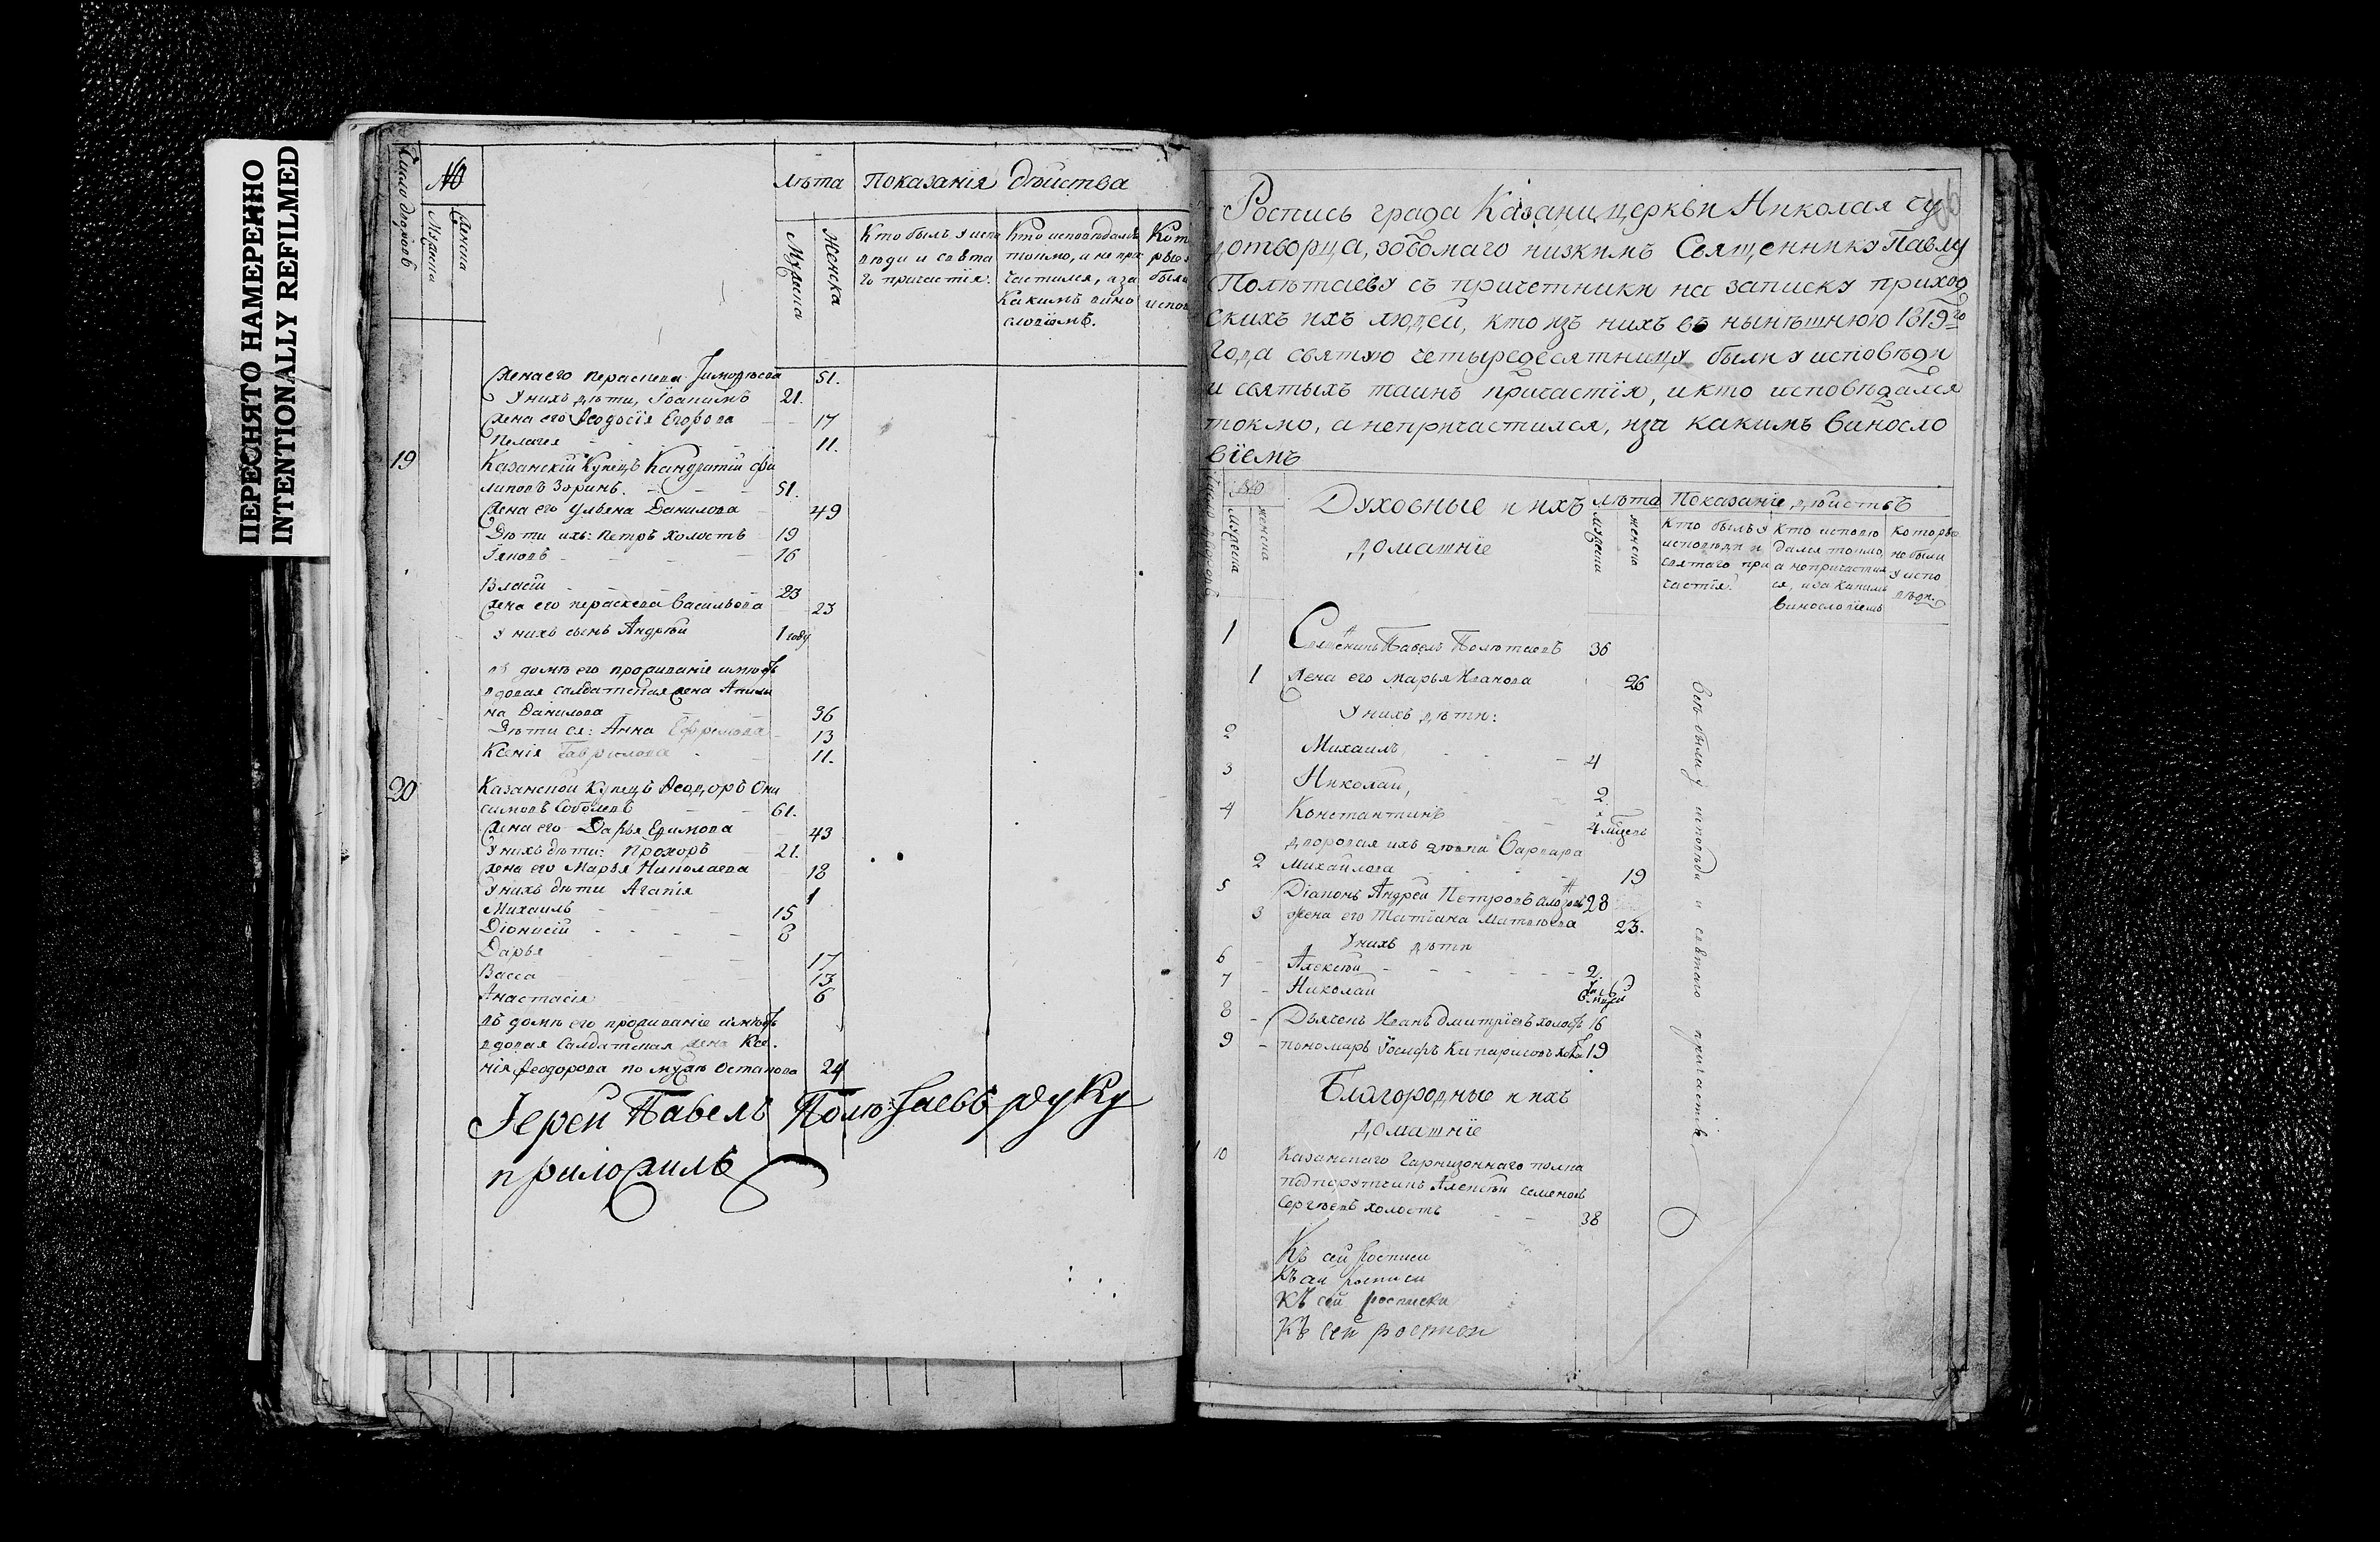 ПЕРЕСНЯТО НАМЕРЕННО
INTENTIONALLY REFILMED
Число дворовъ
№
Мужеска
Женска
лѣта
Показанія дѣйства
Мужеска
Женска
Кто былъ у испо
вѣди и свята
го причастія.
Кто исповѣдался
токмо, и не при
частился, и за
какимъ вино
словіемъ.
Кот
рые
были
испов
жена его Параскева Тимофѣева 51.
У нихъ дѣти, Іоакимъ 21.
жена его Ѳеодосія Егорова 17
Пелагея 11.
19 Казанскій Купецъ Кандратій Фи
липовъ Зоринъ. 51.
жена его Ульяна Данилова 49
Дѣти ихъ: Петръ холостъ 19
Іяковъ 16
Власій 23
жена его Параскева Васильева 23
у нихъ сынъ Андрѣй 1 году
въ домѣ его проживаніе имѣетъ
вдовая салдатская жена Акили
на Данилова 36
Дѣти ея: Анна Ефремова 13
Ксенія Гаврилова 11.
20 Казанской Купецъ Ѳеодоръ Они
симовъ Соболевъ 61.
жена его Дарья Ефимова 43
У нихъ дѣти: Прохоръ 21.
жена его Марья Николаева 18
У нихъ дѣти Агапія 1
Михаилъ 15
Діонисій 8
Дарья 17
Васса 13
Анастасія 6
въ домѣ его проживаніе имѣетъ
вдовая Салдатская жена Ксе
нія Ѳеодорова по мужѣ Остапова 24
Іерей Павелъ Полѣтаевъ руку
приложилъ
Роспись града Казани церкви Николая чу
дотворца, зовомаго низкимъ Священнику Павлу
Полѣтаеву съ причетники на записку приход
скихъ ихъ людей, кто изъ нихъ въ нынѣшнюю 1819го
года святую четыредесятницу были у исповѣди
и святыхъ таинъ причастія, и кто исповѣдался
токмо, а непричастился, иза какимъ виносло
віемъ
Число дворовъ
№
Мужеска
женска
Духовные и ихъ
домашніе
лѣта
мужеска
женска
Показаніе дѣйствъ
Кто былъ у
исповѣди и
святаго при
частія.
Кто исповѣ
дался токмо,
а непричастил
ся, иза какимъ
винословіемъ
Которые
не были
у испо
вѣди.
1 Священникъ Павелъ Полѣтаевъ 36
1 Жена его Марья Иванова 26
У нихъ дѣти:
2 Михаилъ 4
3 Николай, 2.
4 Константинъ 4 мѣцевъ
дворовая ихъ дѣвка Варвара
2 Михайлова 19
5 Діаконъ Андрей Петровъ 28
3 жена его Татіана Матвѣева 23.
У нихъ дѣти
6 Алексѣй 2.
7 Николай
8 Дьячекъ Иванъ Дмитріевъ холостъ 16
9 пономарь Іосифъ Кипарисовъ холостъ 19
Благородные и ихъ
домашніе
10 Казанскаго Гарнизоннаго полка
подпорутчикъ Алексѣй Семеновъ
Сергѣевъ холостъ 38
всѣ были у исповѣди и святаго причастія
Къ сей росписи
Къ сей росписи
Къ сей росписи
Къ сей росписи